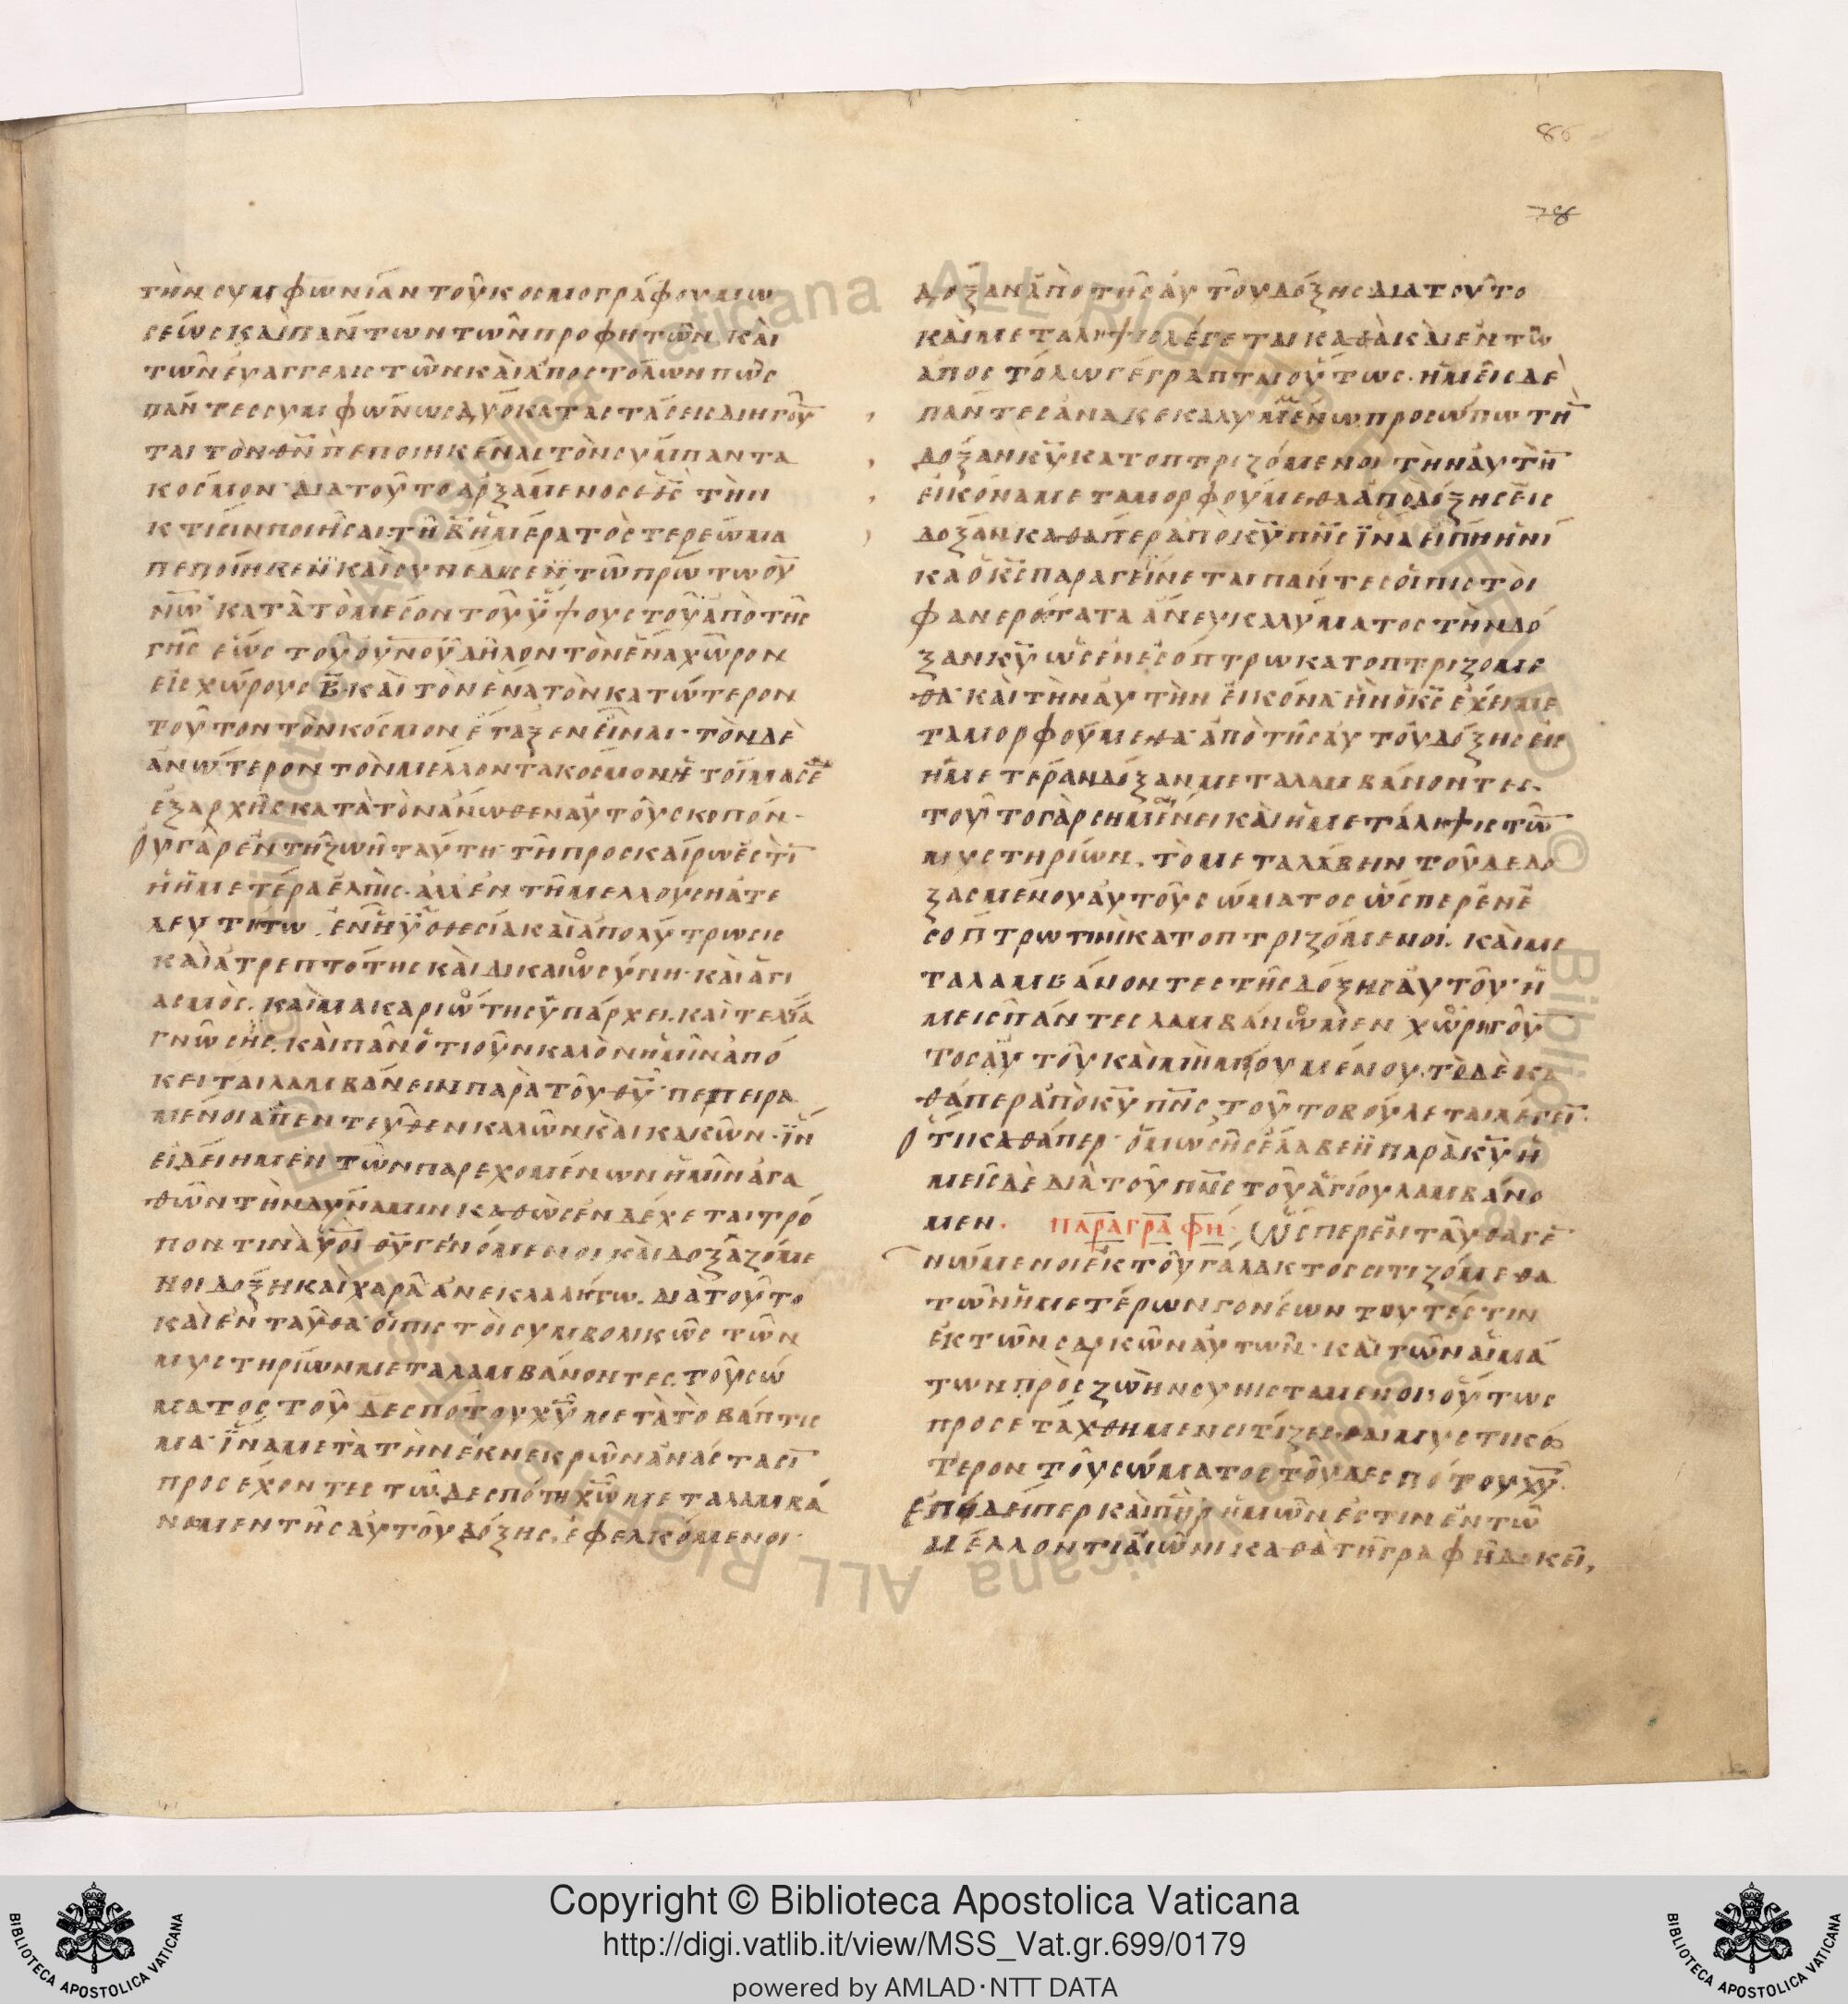 86
78
τὴν συμφωνίαν τοῦ κοσμογράφου μω
σέως καὶ πάντων τῶν προφητῶν καὶ
τῶν εὐαγγελιστῶν καὶ ἀποστόλων πῶς
πάντες συμφώνως δύο καταστάσεις διηγοῦ
ται τὸν θν πεποιηκέναι τὸν σύμπαντα
κόσμον· διατοῦτο ἀρξάμενος ὁ θς τὴν
κτίσιν ποιῆσαι· τῆ β ἡμέρα τὸ στερέωμα
πεποίηκεν καὶ συνέδησεν τῶ πρώτω οὐ
νῶ· κατὰ τὸ μέσον τοῦ ὕψους τοῦ ἀπὸ τῆς
γῆς ἕως τοῦ οὐνοῦ δῆλον τὸν ἕνα χῶρον
εἰς χώρους β· καὶ τὸν ἕνα τὸν κατώτερον
τοῦτον τὸν κόσμον ἔταξεν εἶναι· τὸν δὲ
ἀνώτερον τὸν μέλλοντα κόσμον ἡτοίμασε
ἐξ ἀρχῆς κατὰ τὸν ἄνωθεν αὐτοῦ σκοπόν·
Οὐ γὰρ ἐν τῆ ζωῆ ταύτη· τῆ προσκαίρω ἐστὶ
ἡ ἡμετέρα ἐλπίς· ἀλλ ἐν τῆ μελλούση ἀτε
λευτήτω· ἐν ἧ υἱοθεσία καὶ ἀπολύτρωσις
καὶ ἀτρεπτότης καὶ δικαιωσύνη· καὶ ἁγι
ασμὸς· καὶ μακαριώτης ὑπάρχει· καὶ τελεία
γνῶσης· καὶ πᾶν ὁτιοῦν καλὸν ἡμῖν ἀπό
κειται λαμβάνειν παρὰ τοῦ θυ· πεπειρα
μένοι ἀπεντεῦθεν καλῶν καὶ κακῶν· ἵν
εἰδείημεν τῶν παρεχομένων ἡμῖν ἀγα
θῶν τὴν δύναμιν καθὼς ἐνδέχεται τρό
πον τινὰ υἱοὶ θυ γενόμενοι καὶ δοξαζόμε
νοι δόξη καὶ χαρᾶ ἀνεκλαλήτω· διὰ τοῦτο
καὶ ἐνταῦθα· οἱ πιστοὶ συμβολικῶς τῶν
μυστηρίων μεταλαμβάνοντες· τοῦ σώ
ματος τοῦ δεσπότου χυ μετὰ τὸ βάπτισ
μα· ἵνα μετὰ τὴν ἐκ νεκρῶν ἀνάστασι
προσέχοντες τῶ δεσπότη χω μεταλαμβά
νομεν τῆς αὐτοῦ δόξης· ἐφελκόμενοι
δόξαν ἀπὸ τῆς αὐτοῦ δόξης· διατοῦτο
καὶ μετάληψις λέγεται καθὰ καὶ ἐν τῶ
ἀποστόλω γέγραπται οὕτως· ἡμεῖς δὲ
πάντες ἀνακεκαλυμμένω προσώπω τὴ
δόξαν κυ κατοπτριζόμενοι τὴν αὐτὴ
εἰκόνα μεταμορφούμεθα ἀπο δόξης εἰς
δόξαν καθάπερ ἀπὸ κυ πνς ἵνα εἴπη ἡνί
κα ὁ κς παραγείνεται πάντες οἱ πιστοὶ
φανερότατα ἄνευ καλύματος τὴν δό
ξαν κυ ὡς ἐν ἐσόπτρω κατοπτριζομε
θα· καὶ τὴν αὐτὴν εἰκόνα· ἣν ὁ κς ἔχει με
ταμορφούμεθα· ἀπὸ τῆς αὐτοῦ δόξης εἰς
ἡμετέραν δόξαν μεταλαμβάνοντες·
τοῦτο γὰρ σημαίνει καὶ ἡ μετάληψις τῶ
μυστηρίων· τὸ μεταλάβειν τοῦ δεδο
ξασμένου αὐτοῦ σώματος ὥσπερ ἐν ἐ
σόπτρω τινὶ κατοπτριζόμενοι· καὶ με
ταλαμβάνοντες τῆς δόξης αὐτοῦ· ἡ
μεῖς πάντες λαμβάνωμεν χωριγοῦ
τος αὐτοῦ καὶ μὴ μιουμένου· τὸ δὲ κα
θάπερ ἀπὸ κυ πνς τοῦτο βούλεται λέγει·
ὅτι καθάπερ ὁ μωσῆς ἔλαβεν παρὰ κυ ἡ
μεῖς δὲ διὰ τοῦ πνς τοῦ ἁγίου λαμβάνο
μεν· παραγραφη· Ὥσπερ ἐνταῦθα γε
νώμενοι ἐκ τοῦ γάλακτος σιτιζόμεθα
τῶν ἡμετέρων γονέων τουτέστιν
ἐκ τῶν σαρκῶν αὐτῶν· καὶ τῶν αἱμά
των πρὸς ζωὴν συνιστάμενοι· οὕτως
προσετάχθημεν σιτίζεσθαι μυστικό
τερον τοῦ σώματος τοῦ δεσπότου χυ·
ἐπηδείπερ καὶ πηρ ἡμῶν ἐστιν ἐν τῶ
μέλλοντι αἰῶνι καθὰ τῆ γραφῆ δοκεῖ,
Copyright © Biblioteca Apostolica Vaticana
http://digi.vatlib.it/view/MSS_Vat.gr.699/0179
powered by AMLAD·NTT DATA
BIBLIOTECA APOSTOLICA VATICANA
BIBLIOTECA APOSTOLICA VATICANA